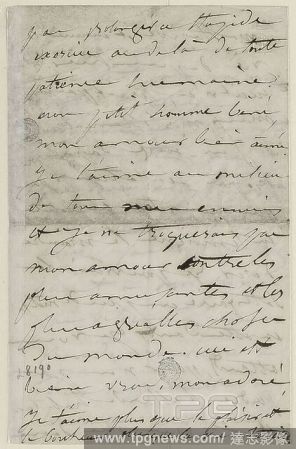 pas prolonger ce stupide
exercice au delà de toute
patience humaine.
mon petit homme béni,
mon amour bien aimé
Je t'aime au milieu
de tous mes ennuis
et je ne troquerais pas
mon amour contre les
plus amusantes et les
plus agréables choses
du monde. cui est
bien vrai, mon adoré
Je t'aime plus que le plaisir et
le bonheur
8190
TPG
www.tpgnews.com / 達志影像